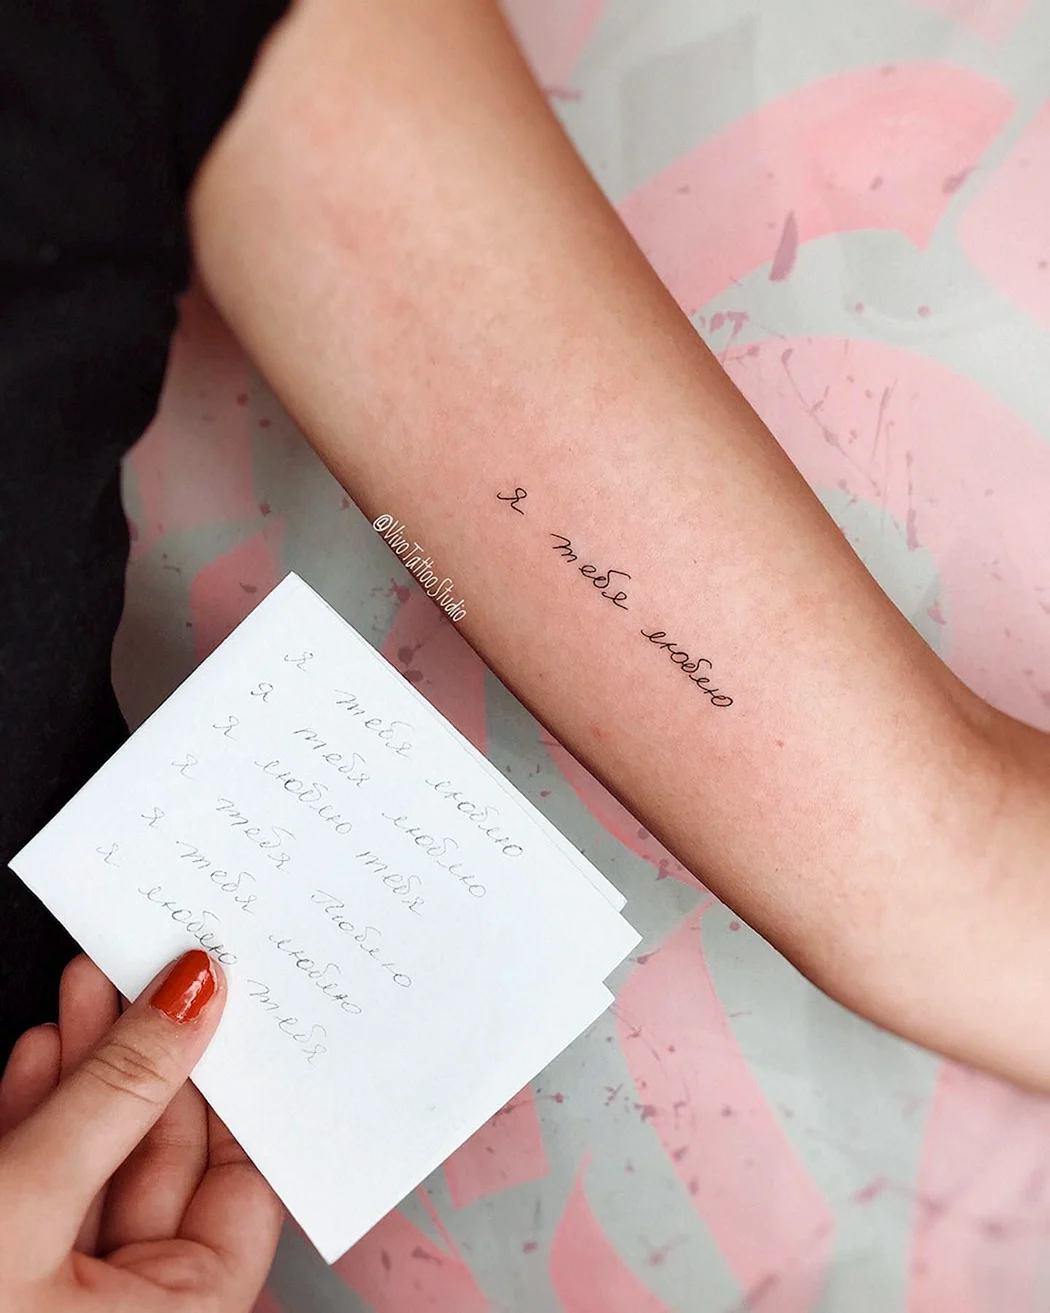 я тебя люблю
@VivoTattooStudio
я тебя люблю
я тебя люблю
я люблю тебя
я тебя люблю
я тебя люблю
я люблю тебя